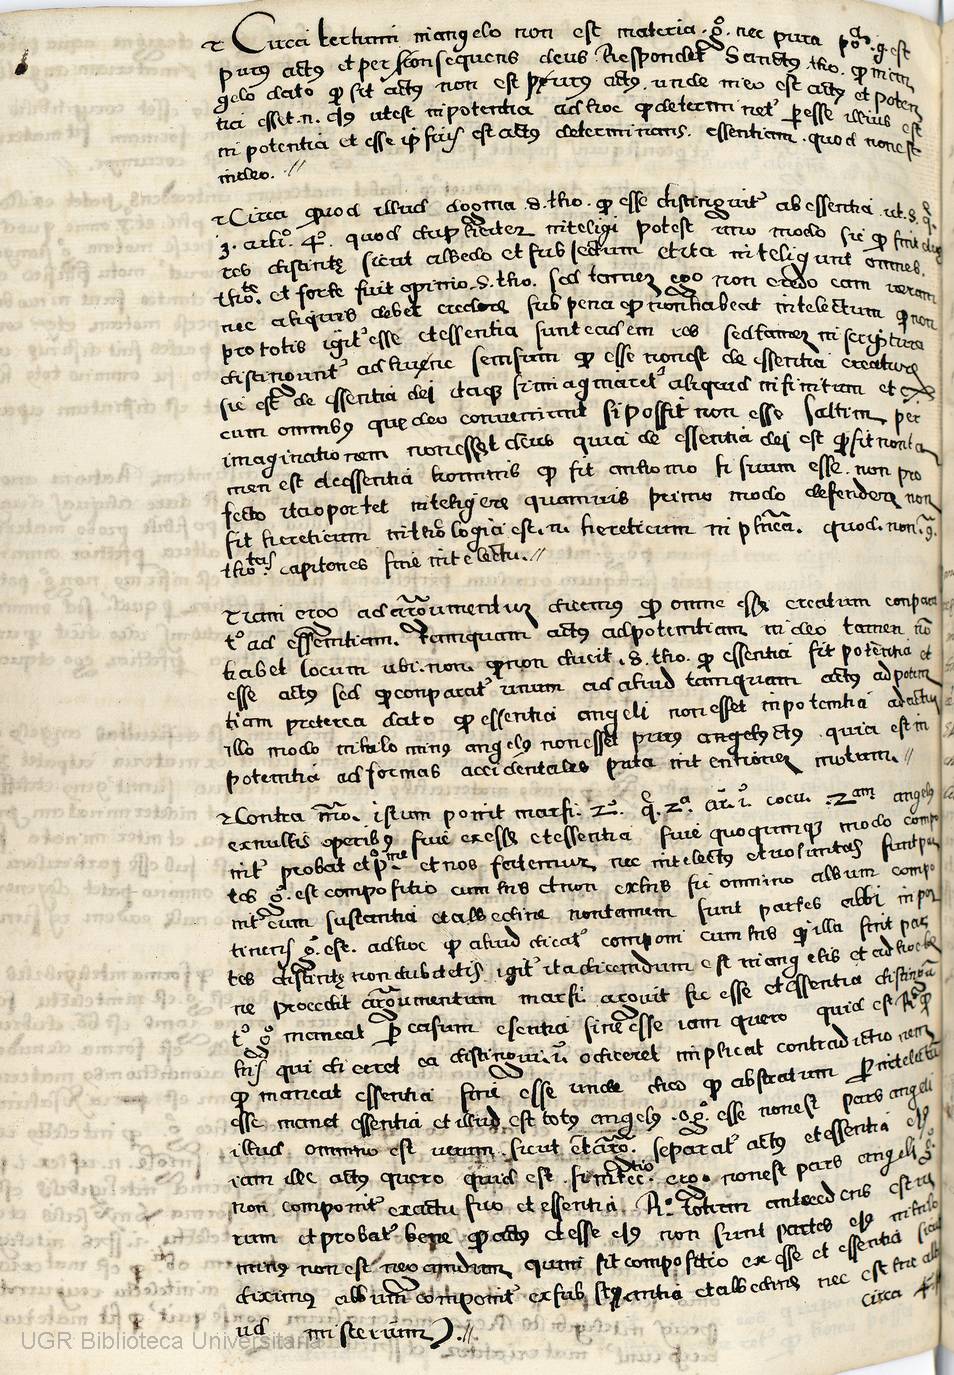 Circa tertium in angelo non est materia. g̊. nec pura p̊ᵃ. g. est
purus actus et per consequens deus Respondet Sanctus. tho. qp in an
gelo dato qp sit actus non est purus actus. unde in eo est actus et poten
tia esset. n. ejus ut est in potentia ad hoc qp determinet' per esse illius est
in potentia et esse ipsius est actus determinans. essentiam. quod non est
in deo. //
Circa quod illud dogma .s. tho. qp esse distinguit' ab essentia ut. s. q̊.
3. arti°. 4°. quod dupliciter inteligi potest uno modo sic qp sint due
res distincte sicut albedo et subjectum et ita inteligunt omnes.
tho^te. et forte fuit opinio .s. tho. sed tamen ego non credo eam veram
nec aliquis debet credere sub pena qp non habeat intelectum qp non
pro totis igit' esse et essentia sunt eadem res sed tamen in scriptura
distinguunt' ad hunc sensum qp esse non est de essentia creature
sic est de essentia dei itaque si imaginaret' aliquid infinitum et
cum omnibus que deo conveniunt si possit non esse saltim per
imaginationem non esset deus quia de essentia dei est qp sit non ta
men est de essentia hominis qp sit antomo si suum esse. non pro
fecto ita oportet inteligere quamvis primo modo defendere non
sit hereticum in theologia est. n. hereticum in phica. quod. non. g.
tho^teis capitones sine intelectu. //
iam ergo ad argumentum dicimus qp omne esse creatum conpara
t' ad essentiam. tamquam actus ad potentiam in deo tamen nō
habet locum ubi. non. qp non dicit .s. tho. qp essentia sit potentia et
esse actus sed qp conparat' unum ad aliud tamquam actus ad poten
tiam preterea dato qp essentia angeli non esset in potentia ad actu
illo modo nihilo minus angelus non esset purus actus quia est in
potentia ad formas accidentales puta intentiones motum. //
Contra m̄o. istum ponit marsi. 2°. q̊. 2ᵃ. ar. 1. cocu. 2ᵃᵐ. angelus
ex multis operibus sive ex esse et essentia sive quoqunque modo compo
nit' probat et p° me et nos fatemur nec intelectus et voluntas sunt par
tes g̊. est compositio cum his et non ex his sic omnino album compo
nit' cum sustantia et albedine non tamen sunt partes albi in per
tinens g̊. est. ad hoc qp aliud dicat' componi cum his qp illa sint par
tes distincte non dubdetis igit' ita dicendum est in angelis et ad hoc be
ne procedit argumentum marsi. arguit sic esse et essentia distingua
t' g̊ maneat per casum esentia sine esse iam quero quid est R° qp
his qui diceret ea distingui. ū. odiceret implicat contradictionem
qp maneat essentia sine esse unde dico qp abstratum per intelectu
esse manet essentia et illud est totus angelus. g̊. esse non est pars angeli
illud omnino est verum. sicut et caro. separat' actus et essentia ejus
iam dec actus quero quid est. ergo non est pars angeli g̊.
non componit' ex actu suo et essentia. R°. totum antecedens est ve
rum et probat' bene qp actus et esse ejus non sunt partes ejus nihilo
minus non est negandum quin sit compositio ex esse et essentia sicut
diximus album componit' ex sub stantia et albedine nec est hic ali
ud misterium). // circa 4
UGR Biblioteca Universitaria